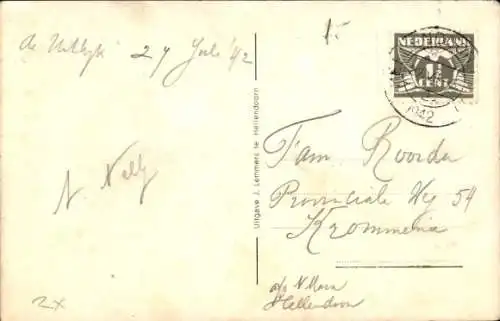 de Uitkijk 27 Juli '42
N. Nelly
2x
Uitgave J. Lemmers te Hellendoorn
15
NEDERLAND
1½
CENT
1942
Fam Roorda
Provinciale Weg 54
Krommenie
Hellendoorn